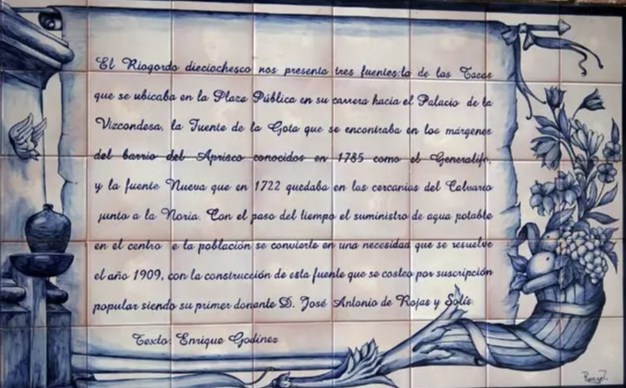 El Riogordo dieciochesco nos presenta tres fuentes:la de las Tacas
que se ubicaba en la Plaza Pública en su carrera hacia el Palacio de la
Vizcondesa, la Fuente de la Gota que se encontraba en los márgenes
del barrio del Aprisco conocidos en 1785 como el Generalife,
y la fuente Nueva que en 1722 quedaba en las cercanías del Calvario
junto a la Noria. Con el paso del tiempo el suministro de agua potable
en el centro e la población se convierte en una necesidad que se resuelve
el año 1909, con la construcción de esta fuente que se costeo por suscripción
popular siendo su primer donante D. José Antonio de Rojas y Solís
Texto: Enrique Godinez